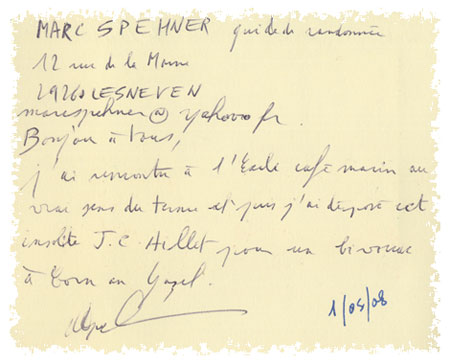 MARC SPEHNER guide de randonnée
12 rue de la Marne
29260 LESNEVEN
marcspehner@yahoo.fr
Bonjour à tous,
j'ai rencontré à l'Exile café marin au
vrai sens du terme et puis j'ai déposé cet
insolite J.C. Aillet pour un bivouac
à
1/05/08